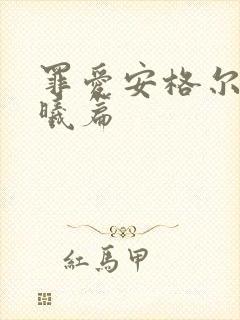 罪愛安格尔
曦篇
紅馬甲